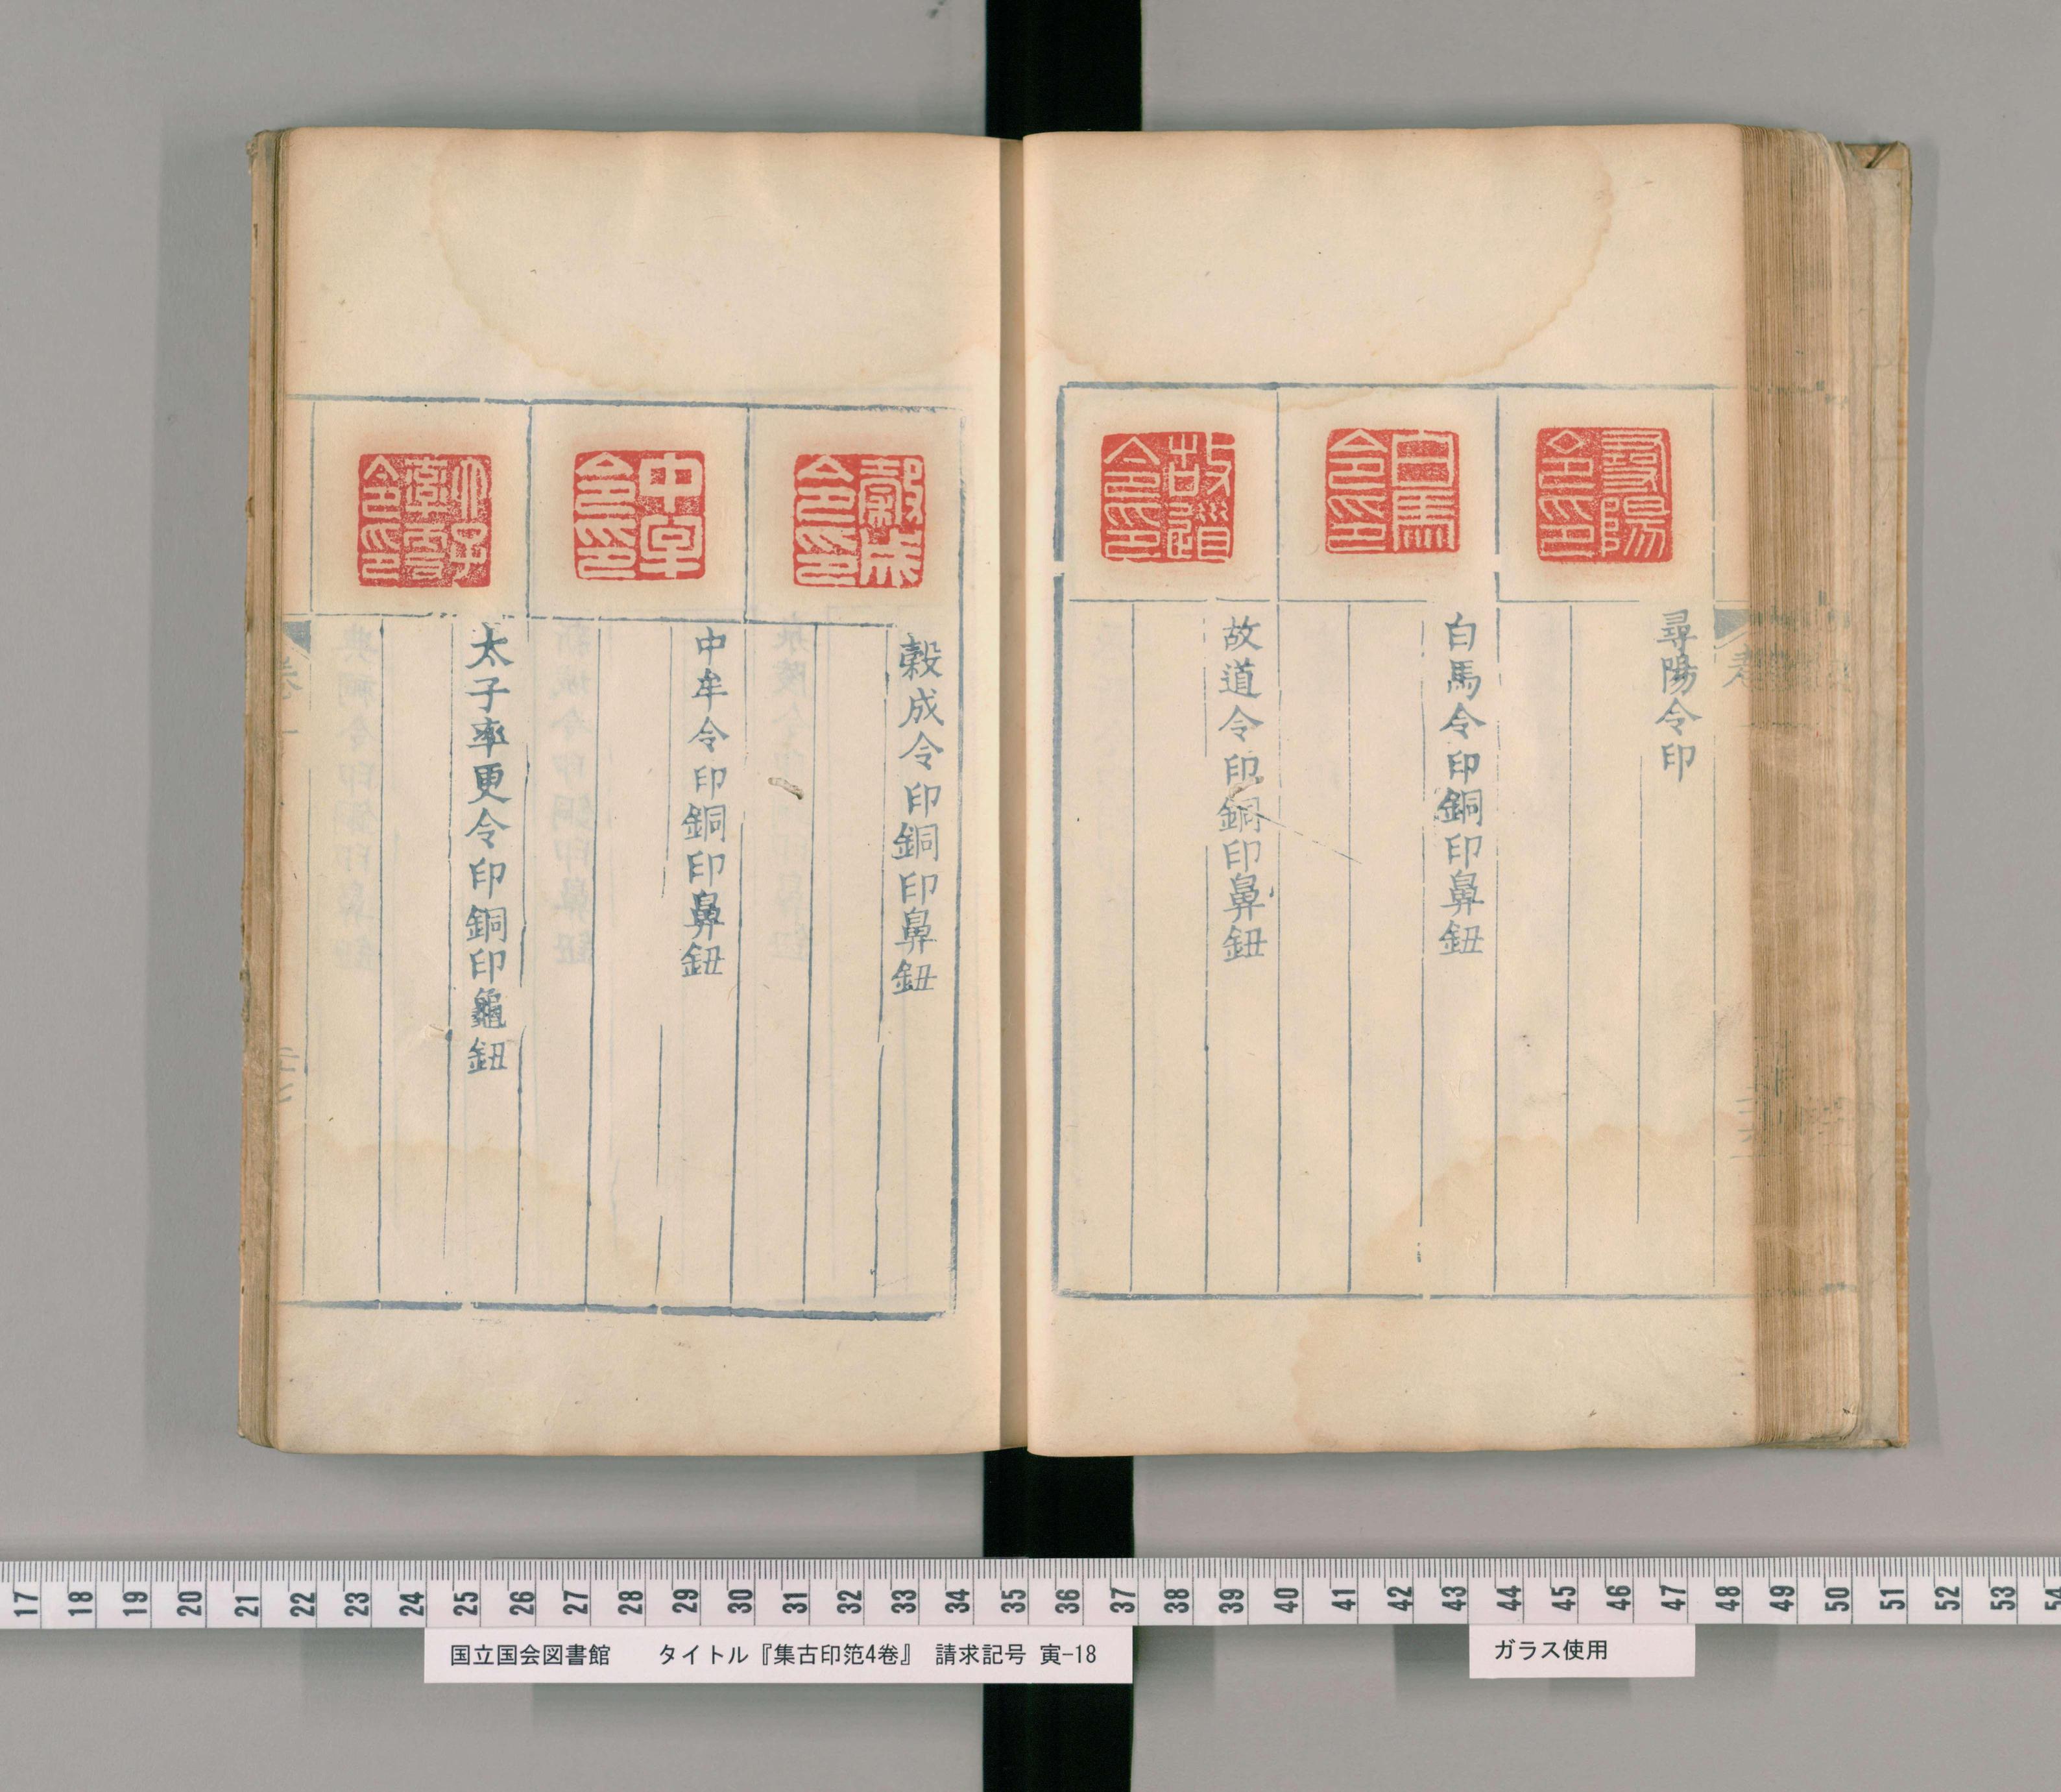 尋陽令印
尋陽令印
白馬令印
白馬令印銅印鼻鈕
故道令印
故道令印銅印鼻鈕
穀成令印
穀成令印銅印鼻鈕
中牟令印
中牟令印銅印鼻鈕
太子率更令印
太子率更令印銅印龜鈕
卷一
17 18 19 20 21 22 23 24 25 26 27 28 29 30 31 32 33 34 35 36 37 38 39 40 41 42 43 44 45 46 47 48 49 50 51 52 53 54
国立国会図書館 タイトル『集古印笵4巻』 請求記号 寅-18
ガラス使用